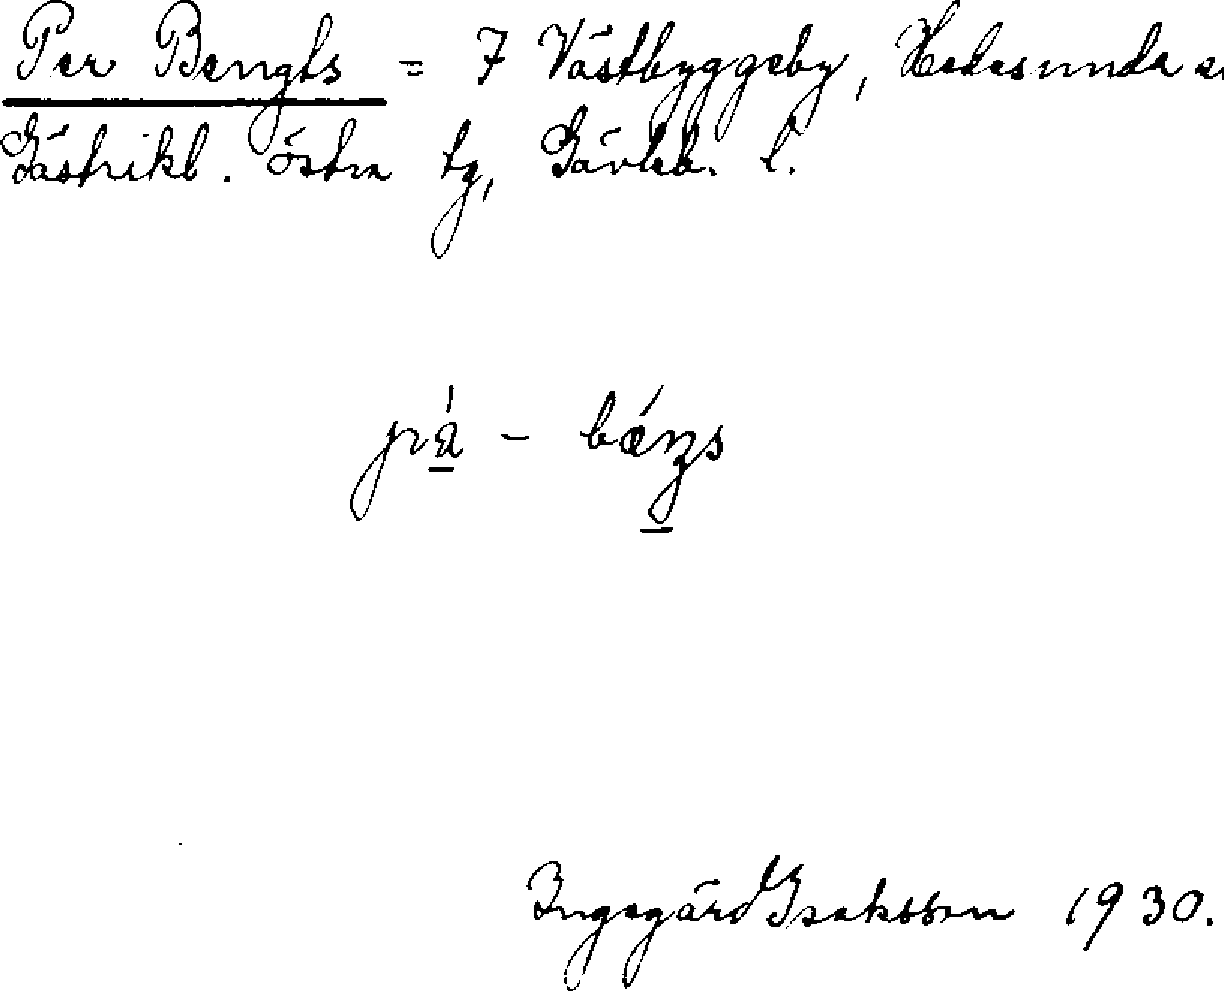 Per Bengts = 7 Västbyggeby, Hedesunda s
Gästrikl. östra tg, Gävleb. l.
Ingegärd Isaksson 1930.